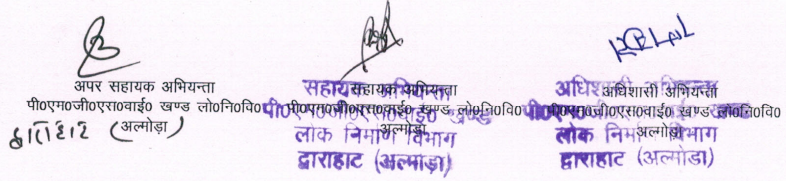 अपर सहायक अभियन्ता
पी०एम०जी०एस०वाई० खण्ड लो०नि०वि०
द्वाराहाट (अल्मोड़ा)
सहायक अभियन्ता
पी०एम०जी०एस०वाई० खण्ड लो०नि०वि०
अल्मोड़ा
सहायक अभियन्ता
पी०एम०जी०एस०वाई० खण्ड
लोक निर्माण विभाग
द्वाराहाट (अल्मोड़ा)
अधिशासी अभियन्ता
पी०एम०जी०एस०वाई० खण्ड लो०नि०वि०
अल्मोड़ा
अधिशासी अभियन्ता
पी०एम०जी०एस०वाई० खण्ड
लोक निर्माण विभाग
द्वाराहाट (अल्मोड़ा)